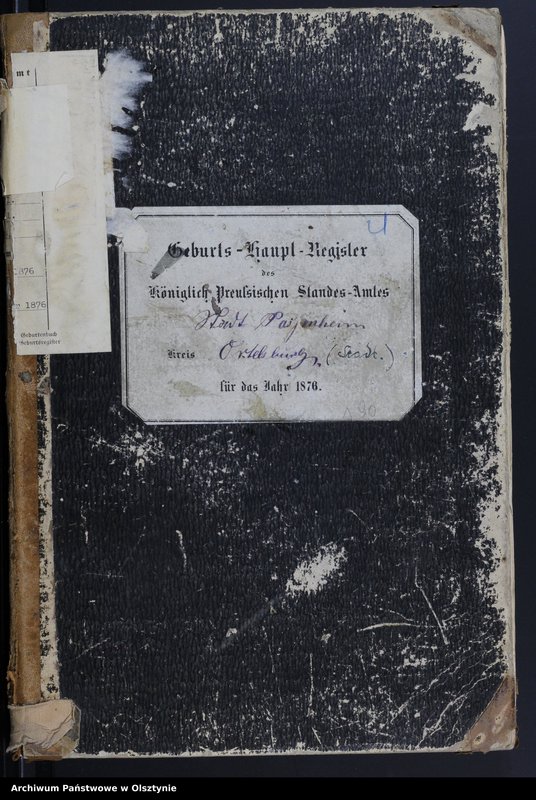 m t
876
1876
Geburtenbuch
Geburtsregister
4
Geburts-Haupt-Register
des
Königlich Preußischen Standes-Amtes
Stadt Passenheim
Kreis Ortelsburg
für das Jahr 1876.
190
Archiwum Państwowe w Olsztynie